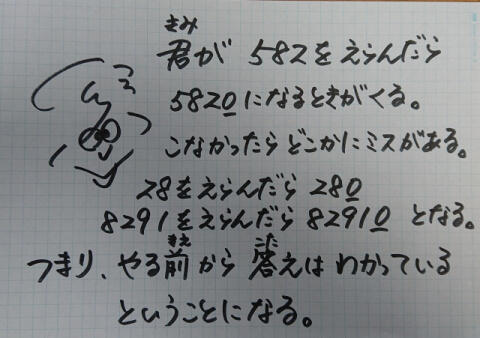 君が 582をえらんだら
5820になるときがくる。
こなかったらどこかにミスがある。
28をえらんだら 280
8291をえらんだら 82910 となる。
つまり、やる前から答えはわかっている
ということになる。